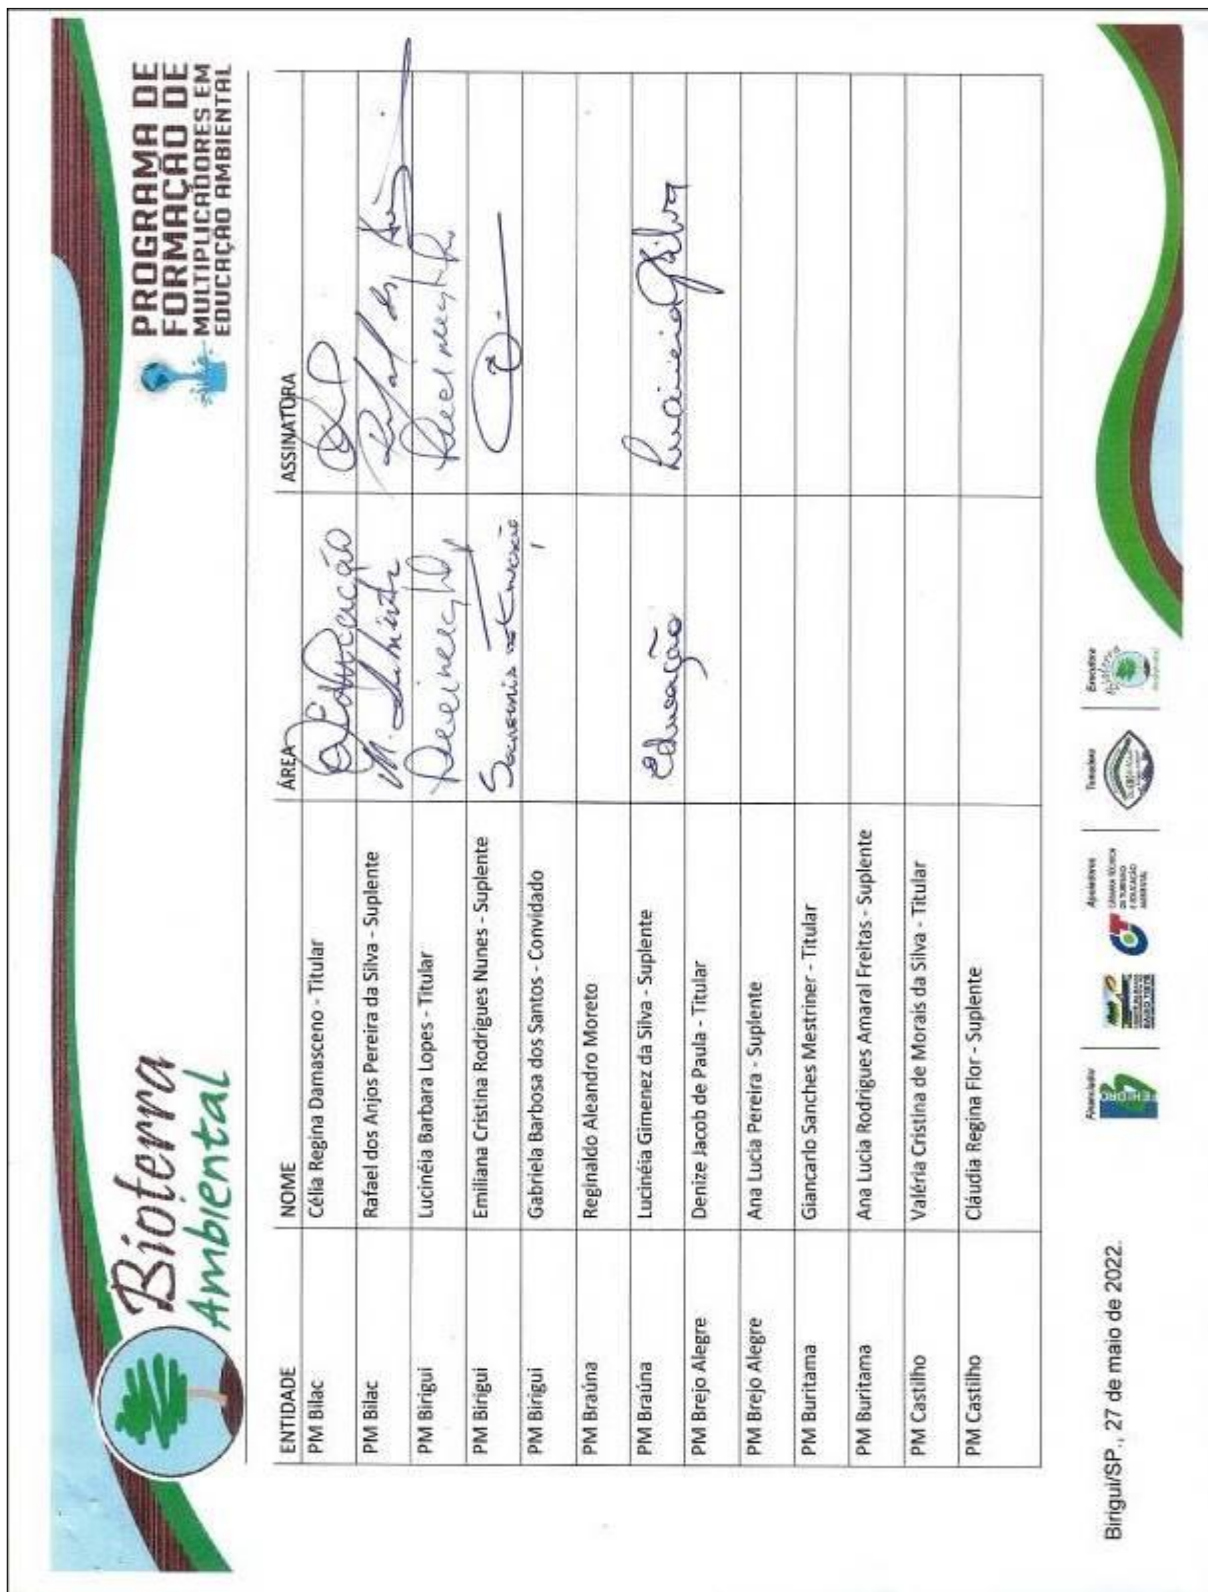 Bioterra
Ambiental
PROGRAMA DE
FORMAÇÃO DE
MULTIPLICADORES EM
EDUCAÇÃO AMBIENTAL
ENTIDADE NOME ÁREA ASSINATURA
PM Bilac Célia Regina Damasceno - Titular Educação
PM Bilac Rafael dos Anjos Pereira da Silva - Suplente M. Ambiente
PM Birigui Lucinéia Barbara Lopes - Titular
PM Birigui Emiliana Cristina Rodrigues Nunes - Suplente
PM Birigui Gabriela Barbosa dos Santos - Convidado
PM Braúna Reginaldo Aleandro Moreto
PM Braúna Lucinéia Gimenez da Silva - Suplente Educação Lucineia G Silva
PM Brejo Alegre Denize Jacob de Paula - Titular
PM Brejo Alegre Ana Lucia Pereira - Suplente
PM Buritama Giancarlo Sanches Mestriner - Titular
PM Buritama Ana Lucia Rodrigues Amaral Freitas - Suplente
PM Castilho Valéria Cristina de Morais da Silva - Titular
PM Castilho Cláudia Regina Flor - Suplente
Birigui/SP., 27 de maio de 2022.
Financiador Apoiadores Tomador Executora
FEHIDRO
BAIXO TIETÊ
CÂMARA TÉCNICA
DE TURISMO
E EDUCAÇÃO
AMBIENTAL